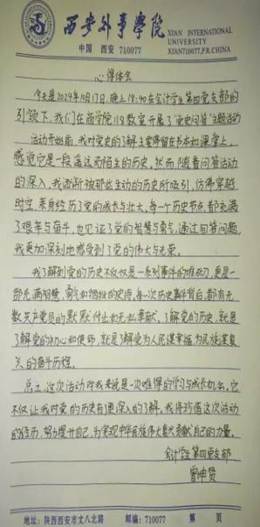 西安外事学院
XIAN INTERNATIONAL
UNIVERSITY
中国 西安 710077
XIAN710077,P.R.CHINA
心得体会
今天是2024年11月17日,晚上19:40在会计学生第四党支部的
引领下,我们在商学院119教室开展了“党史问答”主题活动
活动开始前,我对党史的了解主要停留在书本和课堂上,
感觉它是一段遥远而陌生的历史,然而随着问答活动
的深入,我渐渐被那些生动的历史所吸引,仿佛穿越
时空,亲身经历了党的成长与壮大,每一个历史节点都充满
了艰辛与奋斗,也见证了党的智慧与勇气,通过回答问题
我更加深刻地感受到了党的伟大与光荣。
我了解到党的历史不仅仅是一系列事件的堆砌,更是一
部充满智慧、勇气和牺牲的史诗,每一次历史事件背后,都有无
数共产党员的默默付出和无私奉献,了解党的历史,就是
了解党的初心和使命,就是了解党为人民谋幸福为民族谋复
兴的奋斗历程。
总之,这次活动对我来说是一次难得的学习与成长机会,它
不仅让我对党的历史有更深入的了解,我将珍惜这次活动
的经历,努力提升自己,为实现中华民族伟大复兴贡献自己的力量。
会计学生第四党支部
地址:陕西西安市丈八北路 邮编:710077 第 页